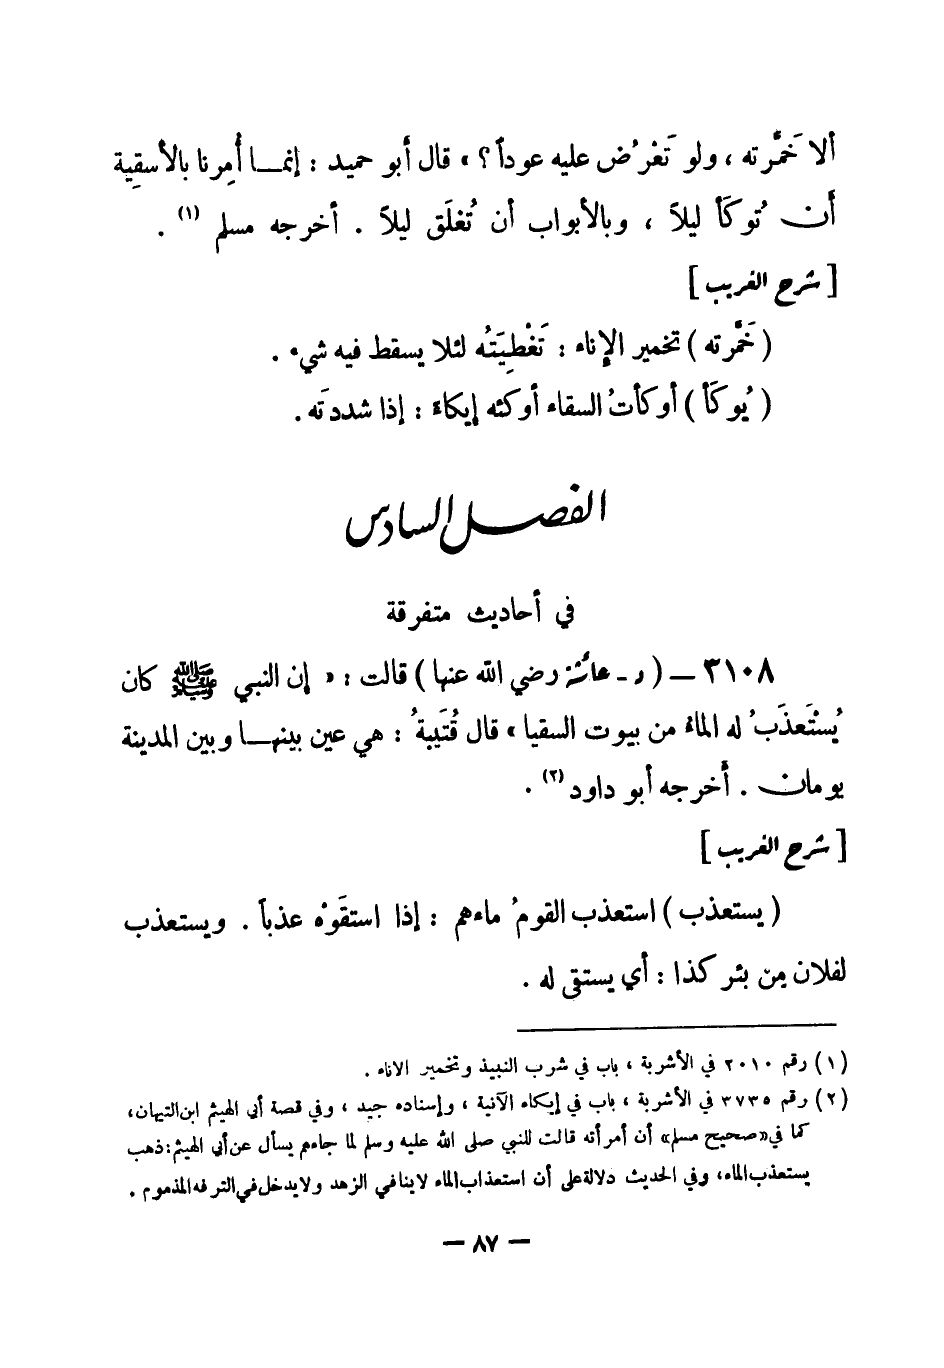 ألا خَمَّرته ، ولو تَعْرُض عليه عوداً ؟ » قال أبو حميد : إنمــا أُمِرنا بالأسقِية
أَن تُوكَأ ليلاً ، وبالأبواب أن تُغلَق ليلاً . أخرجه مسلم (١) .
[ شرح الغريب ]
( خَمَّرته ) تخمير الإناء : تَغْطِيَتَهُ لئلا يسقط فيه شيء .
( يُوكَأ ) أوكأتُ السقاء أوكئه إيكاءً : إذا شددتَه .
الفصل السادس
في أحاديث متفرقة
٣١٠٨ – ( د - عائشة رضي الله عنها ) قالت : « إن النبي ﷺ كان
يُسْتَعذَبُ له الماءُ من بيوت السقيا » قال قُتَيبةُ : هي عين بينهــا وبين المدينة
يومان . أَخرجه أبو داود (٢) .
[ شرح الغريب ]
( يستعذب ) استعذب القومُ ماءهم : إذا استقَوْه عذباً . ويستعذب
لفلان مِن بئر كذا : أي يستقى له .
(١) رقم ٢٠١٠ في الأشربة ، باب في شرب النبيذ وتخمير الاناء .
(٢) رقم ٣٧٣٥ في الأشربة ، باب في إيكاء الآنية ، وإسناده جيد ، وفي قصة أبي الهيثم ابن التيهان،
كما في «صحيح مسلم» أن أمرأته قالت للنبي صلى الله عليه وسلم لما جاءهم يسأل عن أبي الهيثم: ذهب
يستعذب الماء، وفي الحديث دلالة على أن استعذاب الماء لا ينافي الزهد ولا يدخل في الترفه المذموم .
– ٨٧ –